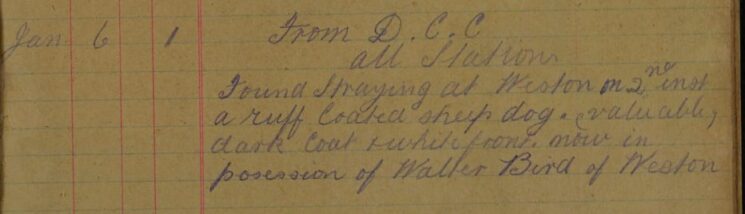 Jan 6 1 From D. C. C
all Stations
Found Straying at Weston on 2nd inst
a ruff Coated sheep dog. (valuable,
dark Coat + white front. now in
posession of Walter Bird of Weston